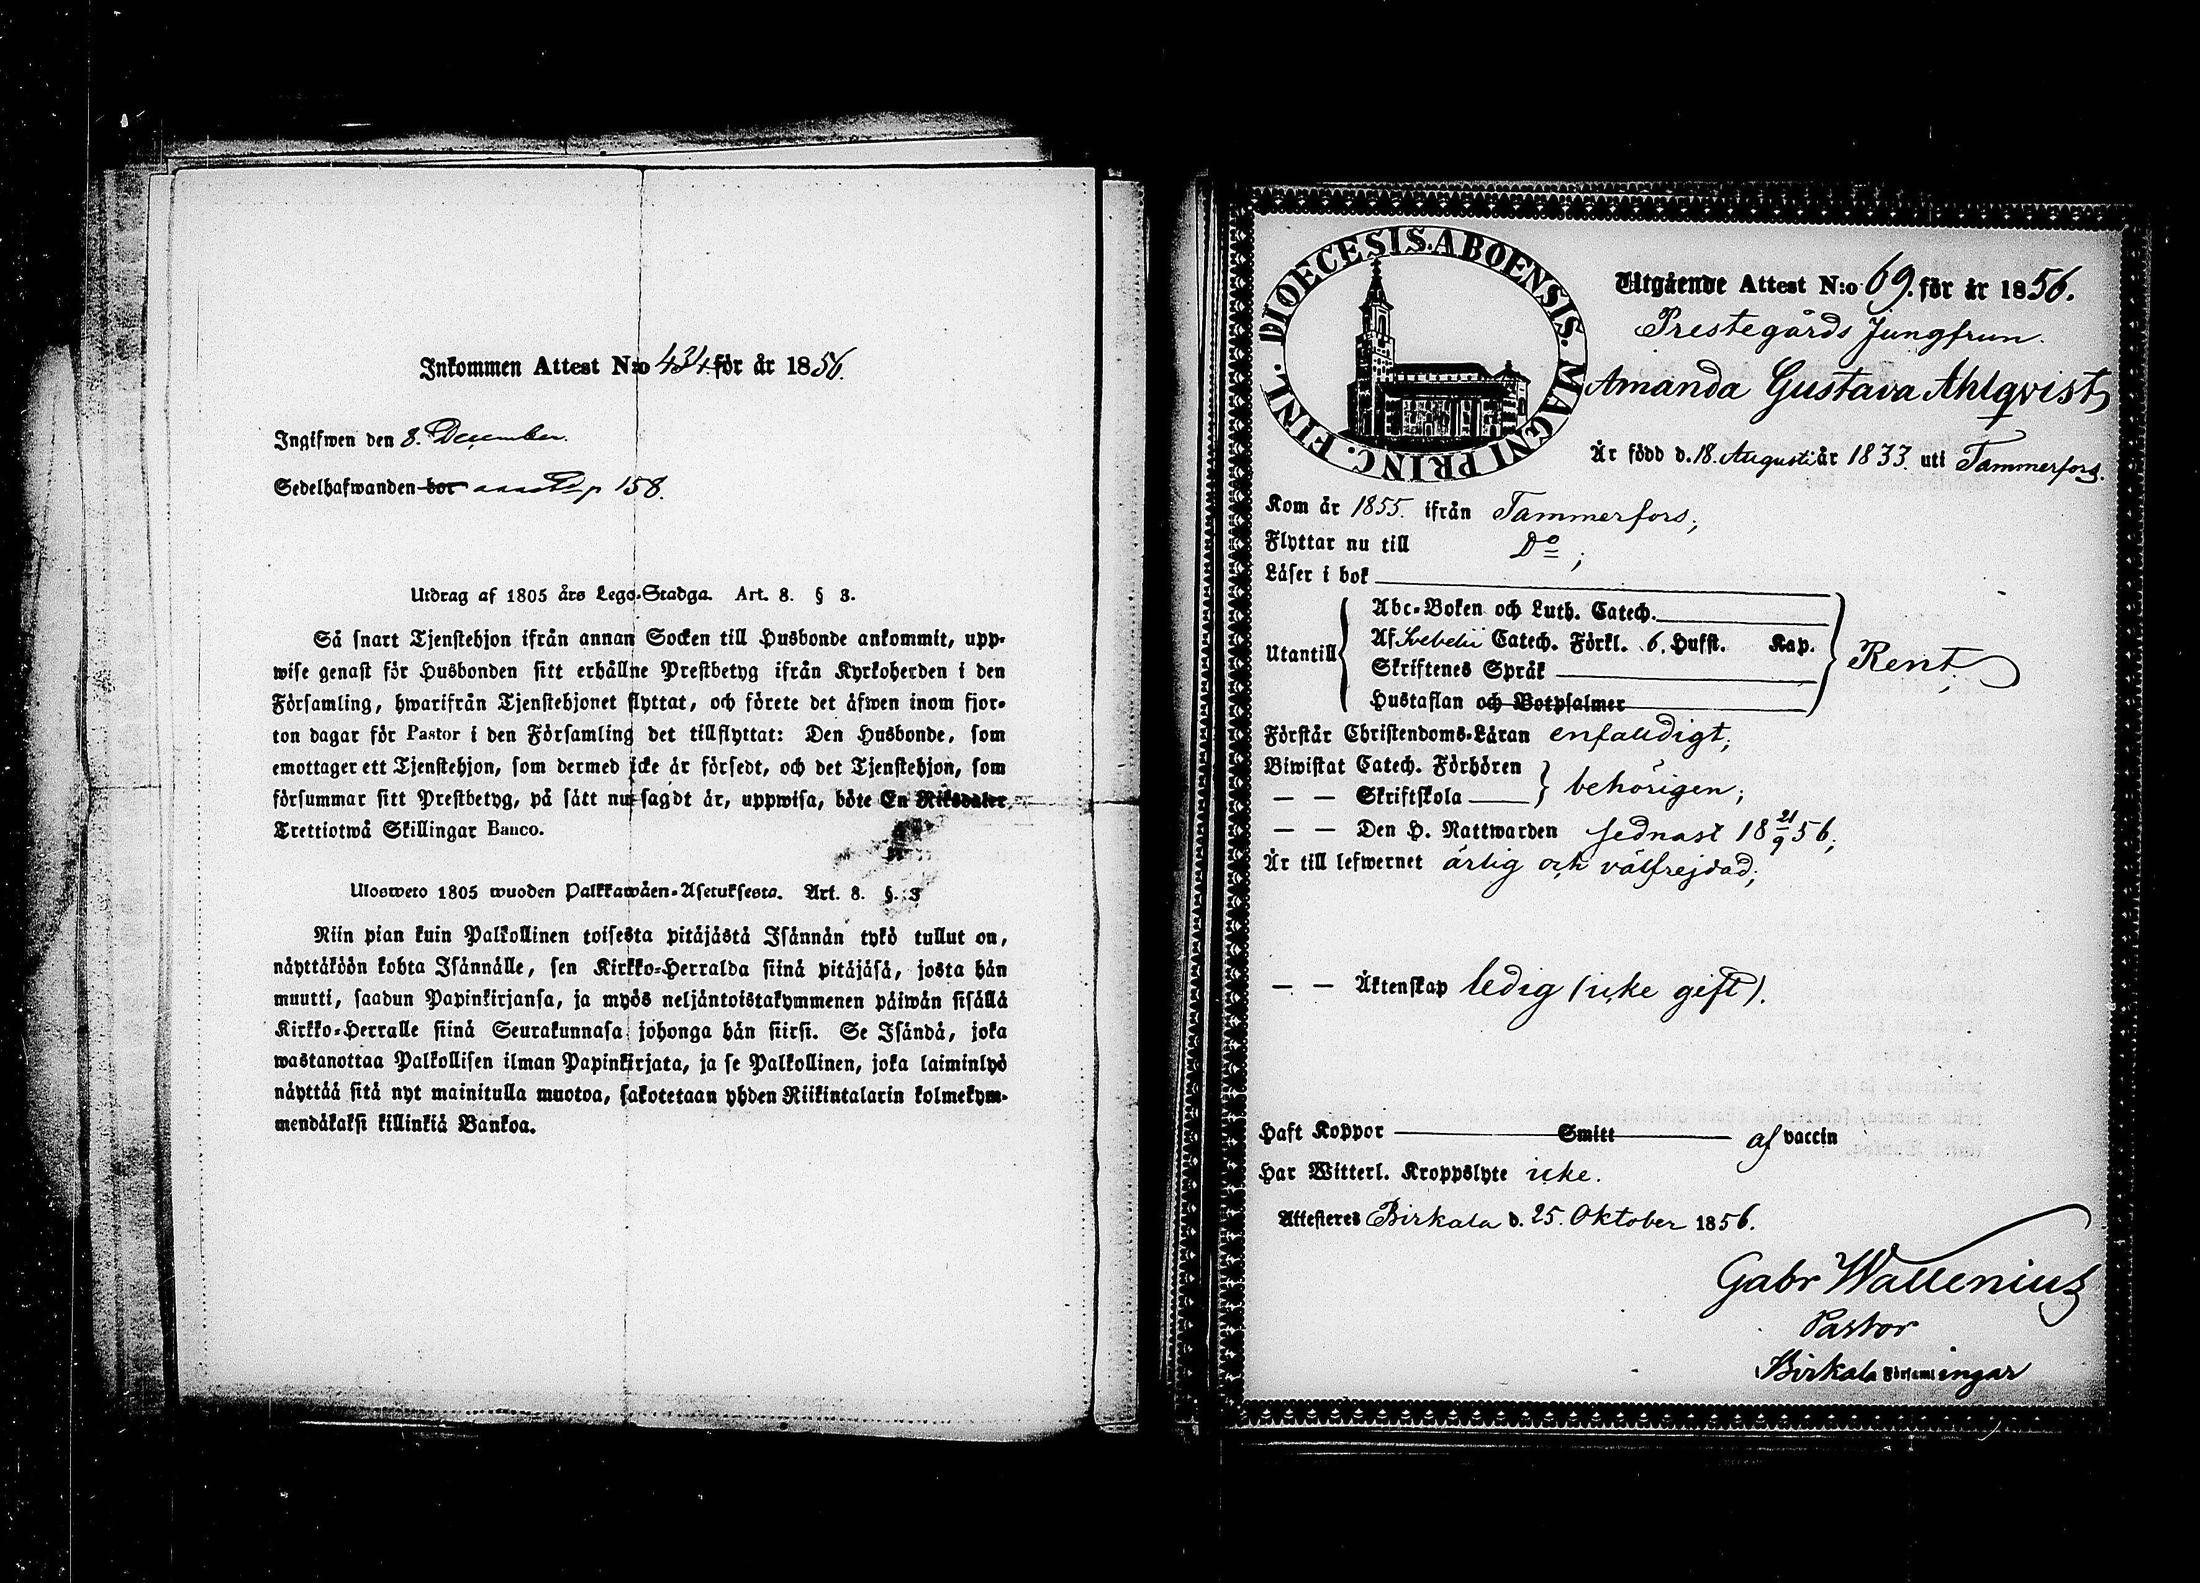 Inkommen Attest N:o 434 för år 1856.
Ingifwen den 8. December.
Sedelhafwanden bor p 158.
Utdrag af 1805 års Lego-Stadga. Art. 8. § 3.
Så snart Tjenstehjon ifrån annan Socken till Husbonde ankommit, upp-
wise genast för Husbonden sitt erhållne Prestbetyg ifrån Kyrkoherden i den
Församling, hwarifrån Tjenstehjonet flyttat, och förete det äfwen inom fjor-
ton dagar för Pastor i den Församling det tillflyttat: Den Husbonde, som
emottager ett Tjenstehjon, som dermed icke är försedt, och det Tjenstehjon, som
försummar sitt Prestbetyg, på sätt nu sagdt är, uppwisa, böte En Riksdaler
Trettiotwå Skillingar Banco.
Ulosweto 1805 wuoden Palkkawäen-Asetuksesta. Art. 8. §. 3
Niin pian kuin Palkollinen toisesta pitäjästä Isännän tykö tullut on,
näyttäköön kohta Isännälle, sen Kirkko-Herralda siinä pitäjäsä, josta hän
muutti, saadun Papinkirjansa, ja myös neljäntoistakymmenen päiwän sisällä
Kirkko-Herralle siinä Seurakunnasa johonga hän siirsi. Se Isändä, joka
wastanottaa Palkollisen ilman Papinkirjata, ja se Palkollinen, joka laiminlyö
näyttää sitä nyt mainitulla muotoa, sakotetaan yhden Riikintalarin kolmekym-
mendäkaksi killinkiä Bankoa.
DIOECESIS. ABOENSIS. MAGNI PRINC. FINL.
Utgående Attest N:o 69. för år 1856.
Prestegårds Jungfrun.
Amanda Gustava Ahlqvist
Är född d. 18. Augusti år 1833. uti Tammerfors.
Kom år 1855. ifrån Tammerfors;
Flyttar nu till Do;
Läser i bok
Abc-Boken och Luth. Catech.
Utantill Af Svebelii Catech. Förkl. 6. Hufst. Kap. Rent;
Skriftenes Språk
Hustaflan och Botpsalmer
Förstår Christendoms-Läran enfaldigt;
Biwistat Catech. Förhören behörigen;
— — Skriftskola
— — Den H. Nattwarden sednast 18 21/9 56;
Är till lefwernet ärlig och välfrejdad;
— — Äktenskap ledig (icke gift).
Haft Koppor Smitt af vaccin
Har Witterl. Kroppslyte icke.
Attesteres Birkala d. 25. Oktober 1856.
Gabr Wallenius
Pastor
Birkala Församlingar